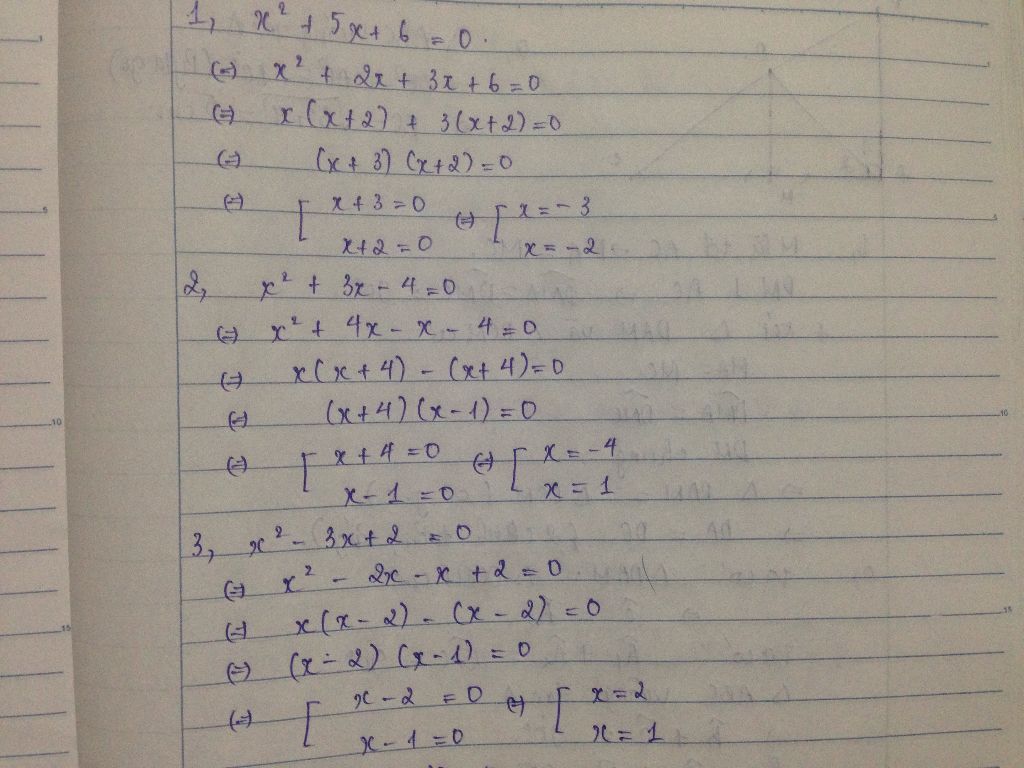 1, x² + 5x + 6 = 0.
(=) x² + 2x + 3x + 6 = 0
(=) x(x+2) + 3(x+2) = 0
(=) (x+3)(x+2) = 0
(=) [ x+3 = 0 (=) [ x = -3
x+2 = 0 x = -2
2, x² + 3x - 4 = 0
(=) x² + 4x - x - 4 = 0
(=) x(x+4) - (x+4) = 0
(=) (x+4)(x-1) = 0
(=) [ x+4 = 0 (=) [ x = -4
x-1 = 0 x = 1
3, x² - 3x + 2 = 0
(=) x² - 2x - x + 2 = 0
(=) x(x-2) - (x-2) = 0
(=) (x-2)(x-1) = 0
(=) [ x-2 = 0 (=) [ x = 2
x-1 = 0 x = 1